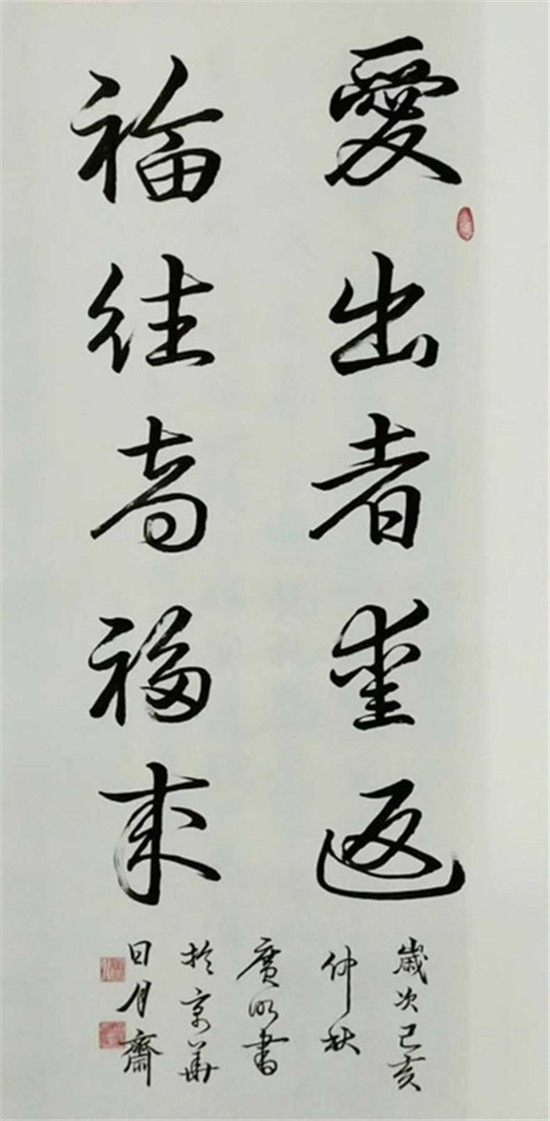 愛出者愛返
福往者福來
歲次己亥
仲秋
廣明書
於京華
日月齋